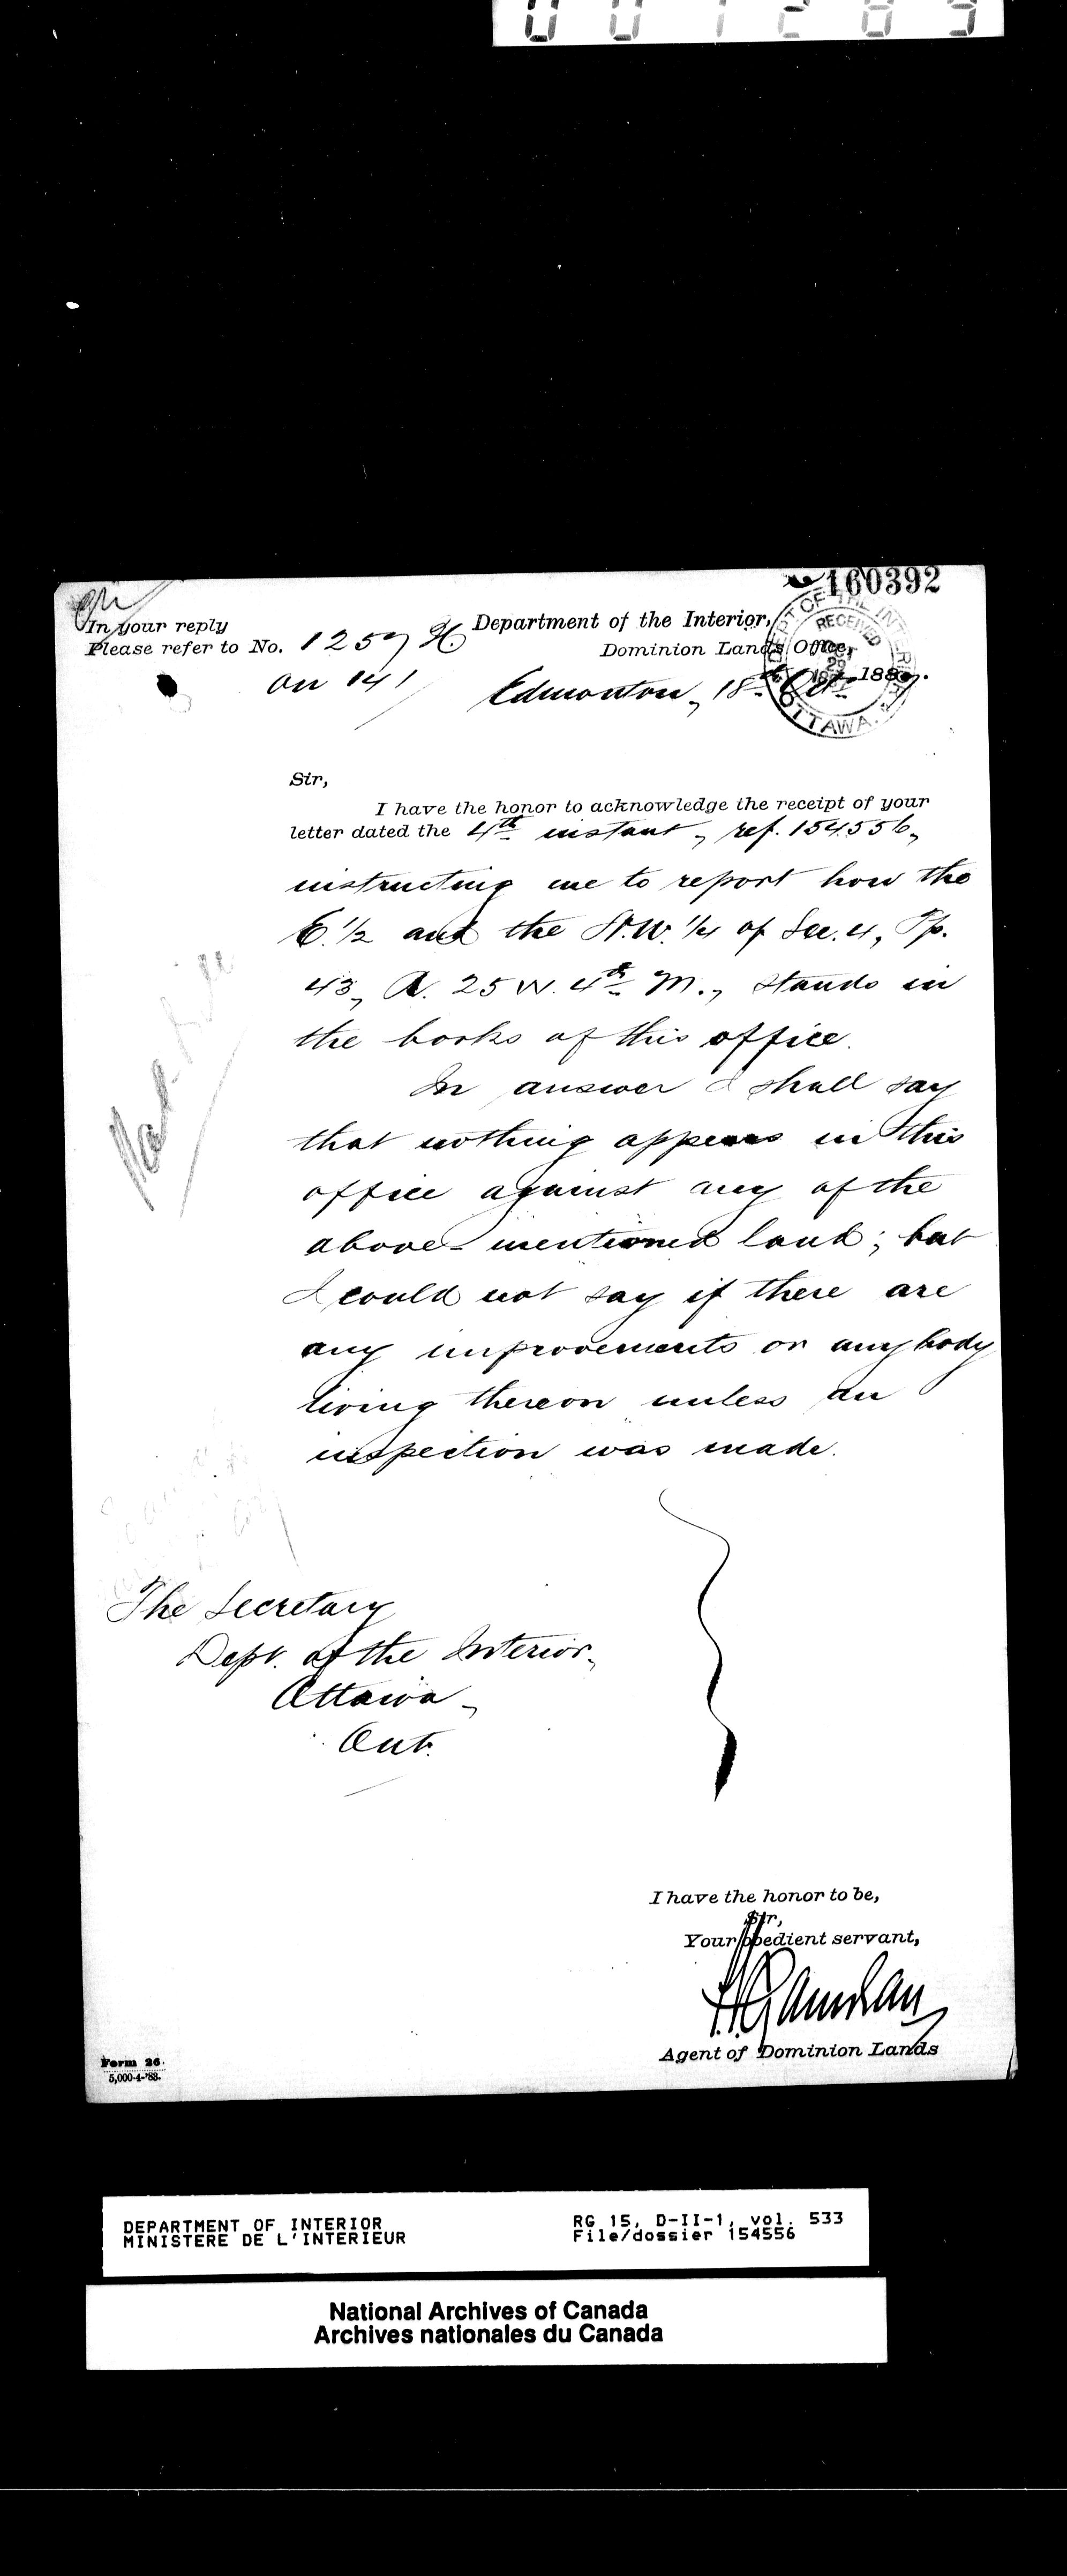 001289
160392
In your reply
Please refer to No. 1257 H
on 141
Department of the Interior,
Dominion Lands Office,
Edmonton, 18th Oct. 1887.
DEPT OF THE INTERIOR
RECEIVED
OTTAWA
Sir,
I have the honor to acknowledge the receipt of your
letter dated the 4th instant, ref. 154556,
instructing me to report how the
E. 1/2 and the N.W. 1/4 of Sec. 4, Tp.
43, R. 25 W. 4th M., stands in
the books of this office.
In answer I shall say
that nothing appears in this
office against any of the
above-mentioned land; but
I could not say if there are
any improvements or anybody
living thereon unless an
inspection was made.
The Secretary
Dept. of the Interior,
Ottawa,
Ont.
I have the honor to be,
Sir,
Your obedient servant,
Agent of Dominion Lands
Form 26.
5,000-4-'83.
DEPARTMENT OF INTERIOR
MINISTERE DE L'INTERIEUR
RG 15, D-II-1, vol. 533
File/dossier 154556
National Archives of Canada
Archives nationales du Canada